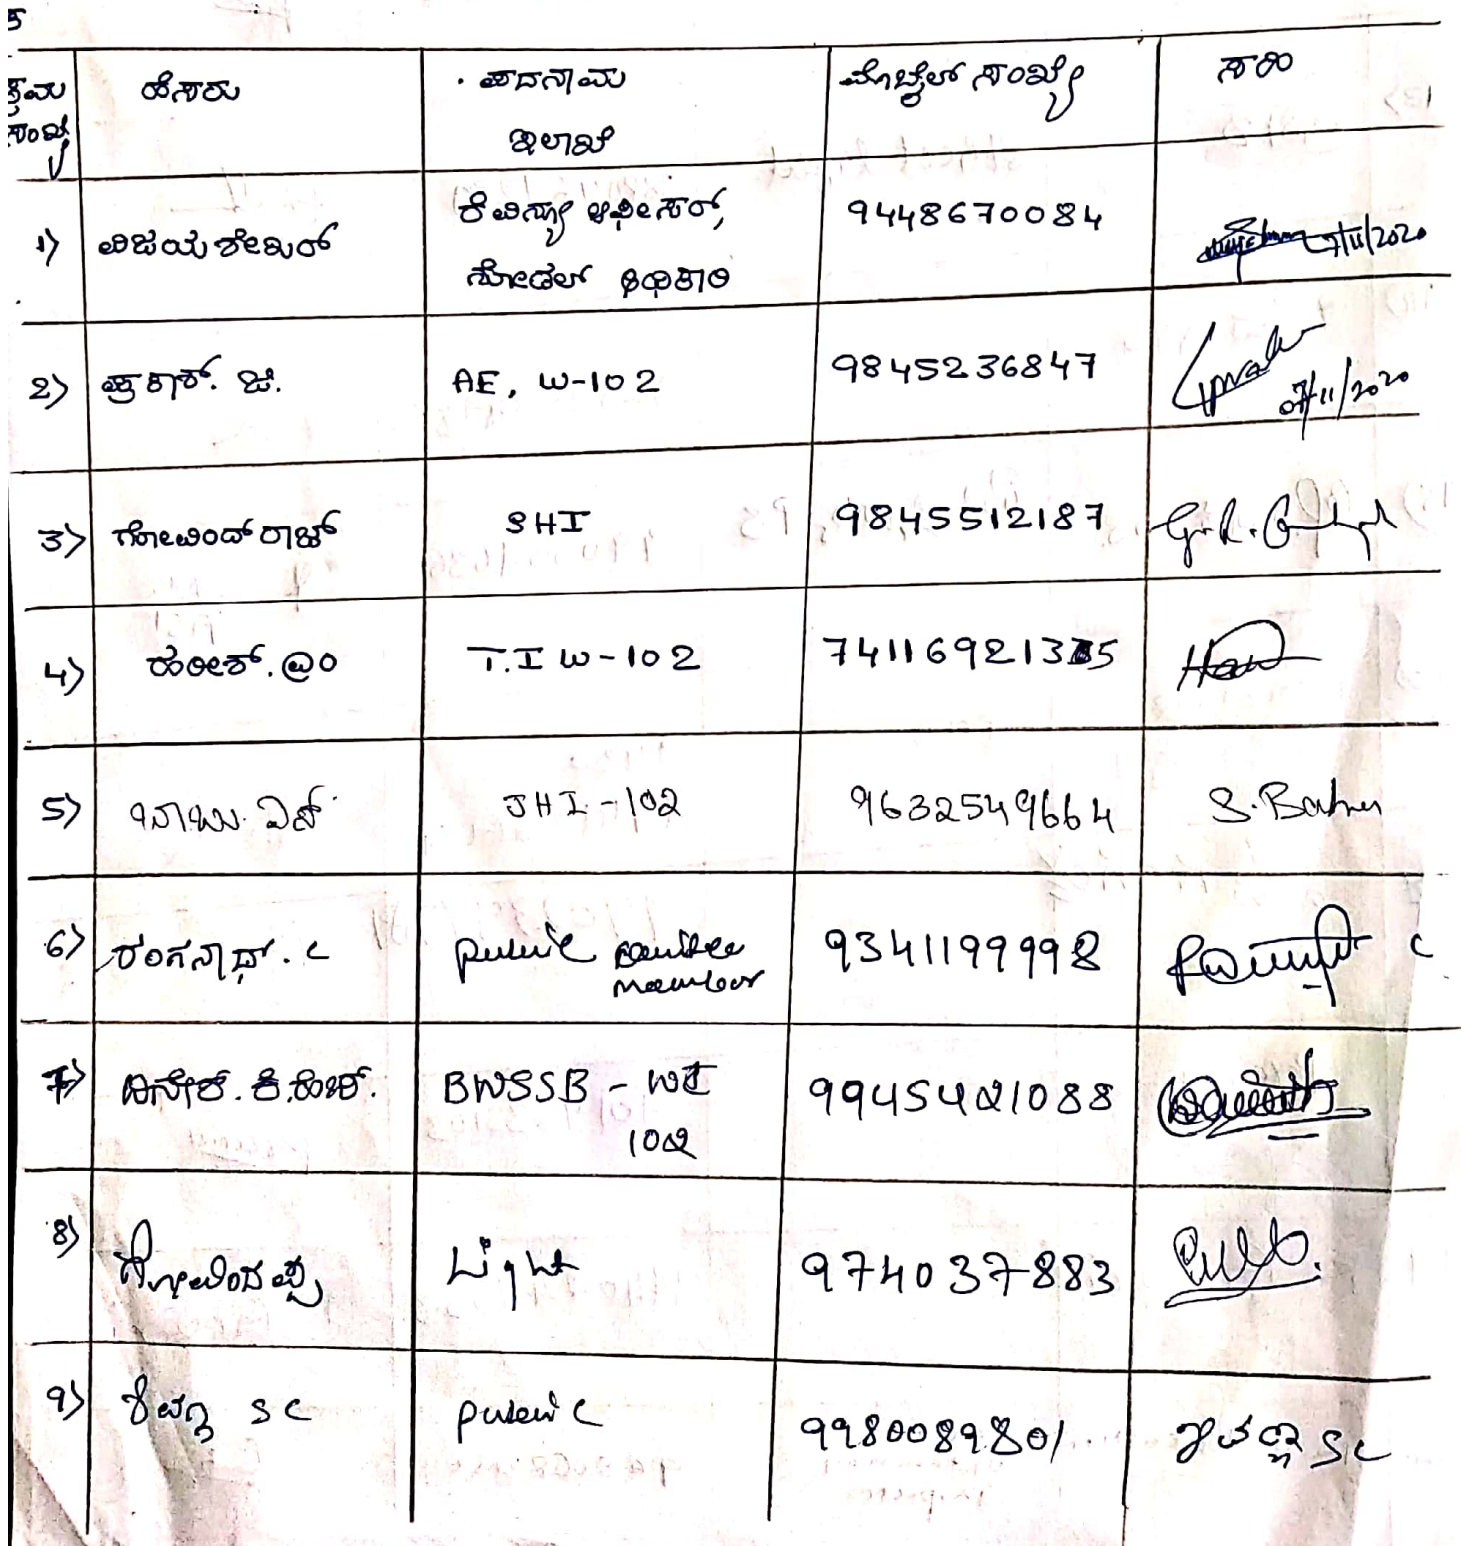 ಕ್ರಮ ಸಂಖ್ಯೆ ಹೆಸರು ಪದನಾಮ ಇಲಾಖೆ ಮೊಬೈಲ್ ಸಂಖ್ಯೆ ಸಹಿ
1) ವಿಜಯಶೇಖರ್ ರೆವಿನ್ಯೂ ಆಫೀಸರ್, ನೋಡಲ್ ಅಧಿಕಾರಿ 9448670084 7/11/2020
2) ಪ್ರಕಾಶ್. ಜಿ. AE, W-102 9845236847 07/11/2020
3) ಗೋವಿಂದ್ ರಾಜ್ SHI 9845512187
4) ಹರೀಶ್. ಎಂ T.I W-102
5) ಬಾಬು. ಎಸ್ JHI-102 9632549664 S. Babu
6) ರಂಗನಾಥ್. C public member 9341199998 C
7) ದಿನೇಶ್. ಕೆ.ಹೆಚ್. BWSSB - 102 9945421088
8) ಗೋವಿಂದಪ್ಪ Light 974037883
9) ಶಿವಣ್ಣ SC public 9980089801 ಶಿವಣ್ಣ SC